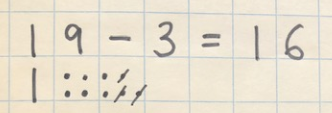 19 - 3 = 16